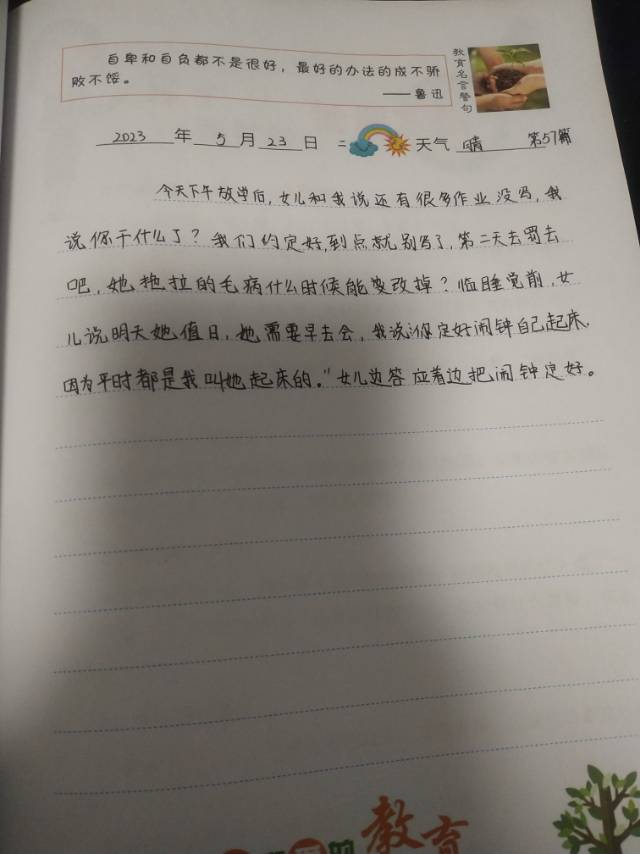 自卑和自负都不是很好，最好的办法的成不骄
败不馁。
——鲁迅
教育名言警句
2023 年 5 月 23 日 二 天气 晴 第57篇
今天下午放学后，女儿和我说还有很多作业没写，我
说你干什么了？我们约定好，到点就别写了，第二天去罚去
吧，她拖拉的毛病什么时候能够改掉？临睡觉前，女
儿说明天她值日，她需要早去会，我说：你定好闹钟自己起床，
因为平时都是我叫她起床的。”女儿边答应着边把闹钟定好。
的教育